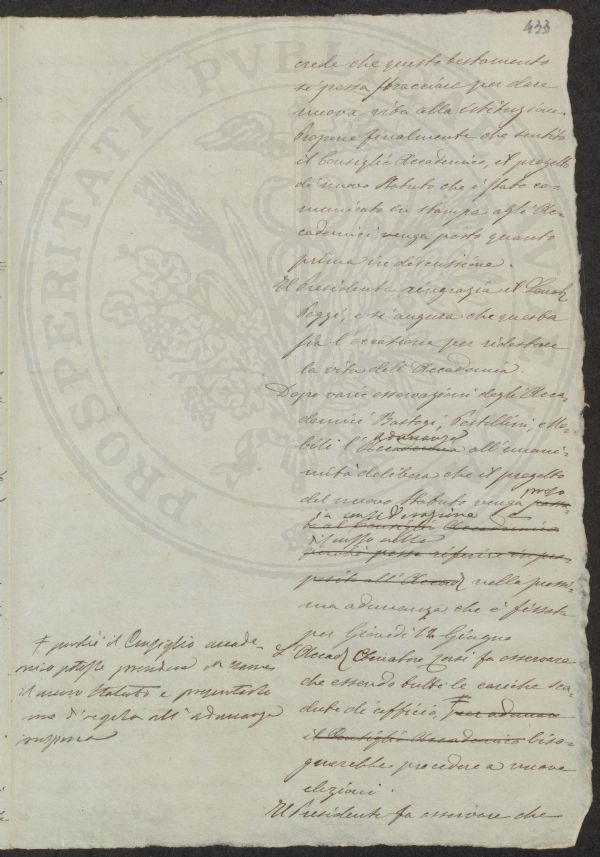 433
PROSPERITATI PVBLICAE
crede che questo testamento
si possa stracciare per dare
nuova vita alla istituzione.
Propone finalmente che sentito
il Consiglio Accademico, il progetto
di nuovo Statuto che è stato co-
municato in stampa agli Ac-
cademici venga posto quanto
prima in discussione.
Il Presidente ringrazia il
Poggi, e si augura che questa
sia l'occasione per ridestare
la vita dell'Accademia.
Dopo varie osservazioni degli Acca-
demici Bastogi, Pestellini, e No-
adunanza
bili l'Accademia all'unani-
mità delibera che il progetto
preso
del nuovo Statuto venga
in considerazione
al Consiglio Accademico
perché possa riferire in pro-
posito all'Accad. nella prossi-
ma adunanza che è fissata
per Giovedì 12 Giugno
L'Accad. Senatore Corsi fa osservare
che essendo tutte le cariche sca-
dute di ufficio,
il Consiglio Accademico biso-
gnerebbe procedere a nuove
elezioni.
Il Presidente fa osservare che
perché il Consiglio accade-
mico potesse prendere in esame
il nuovo Statuto e presentarlo
all'adunanza